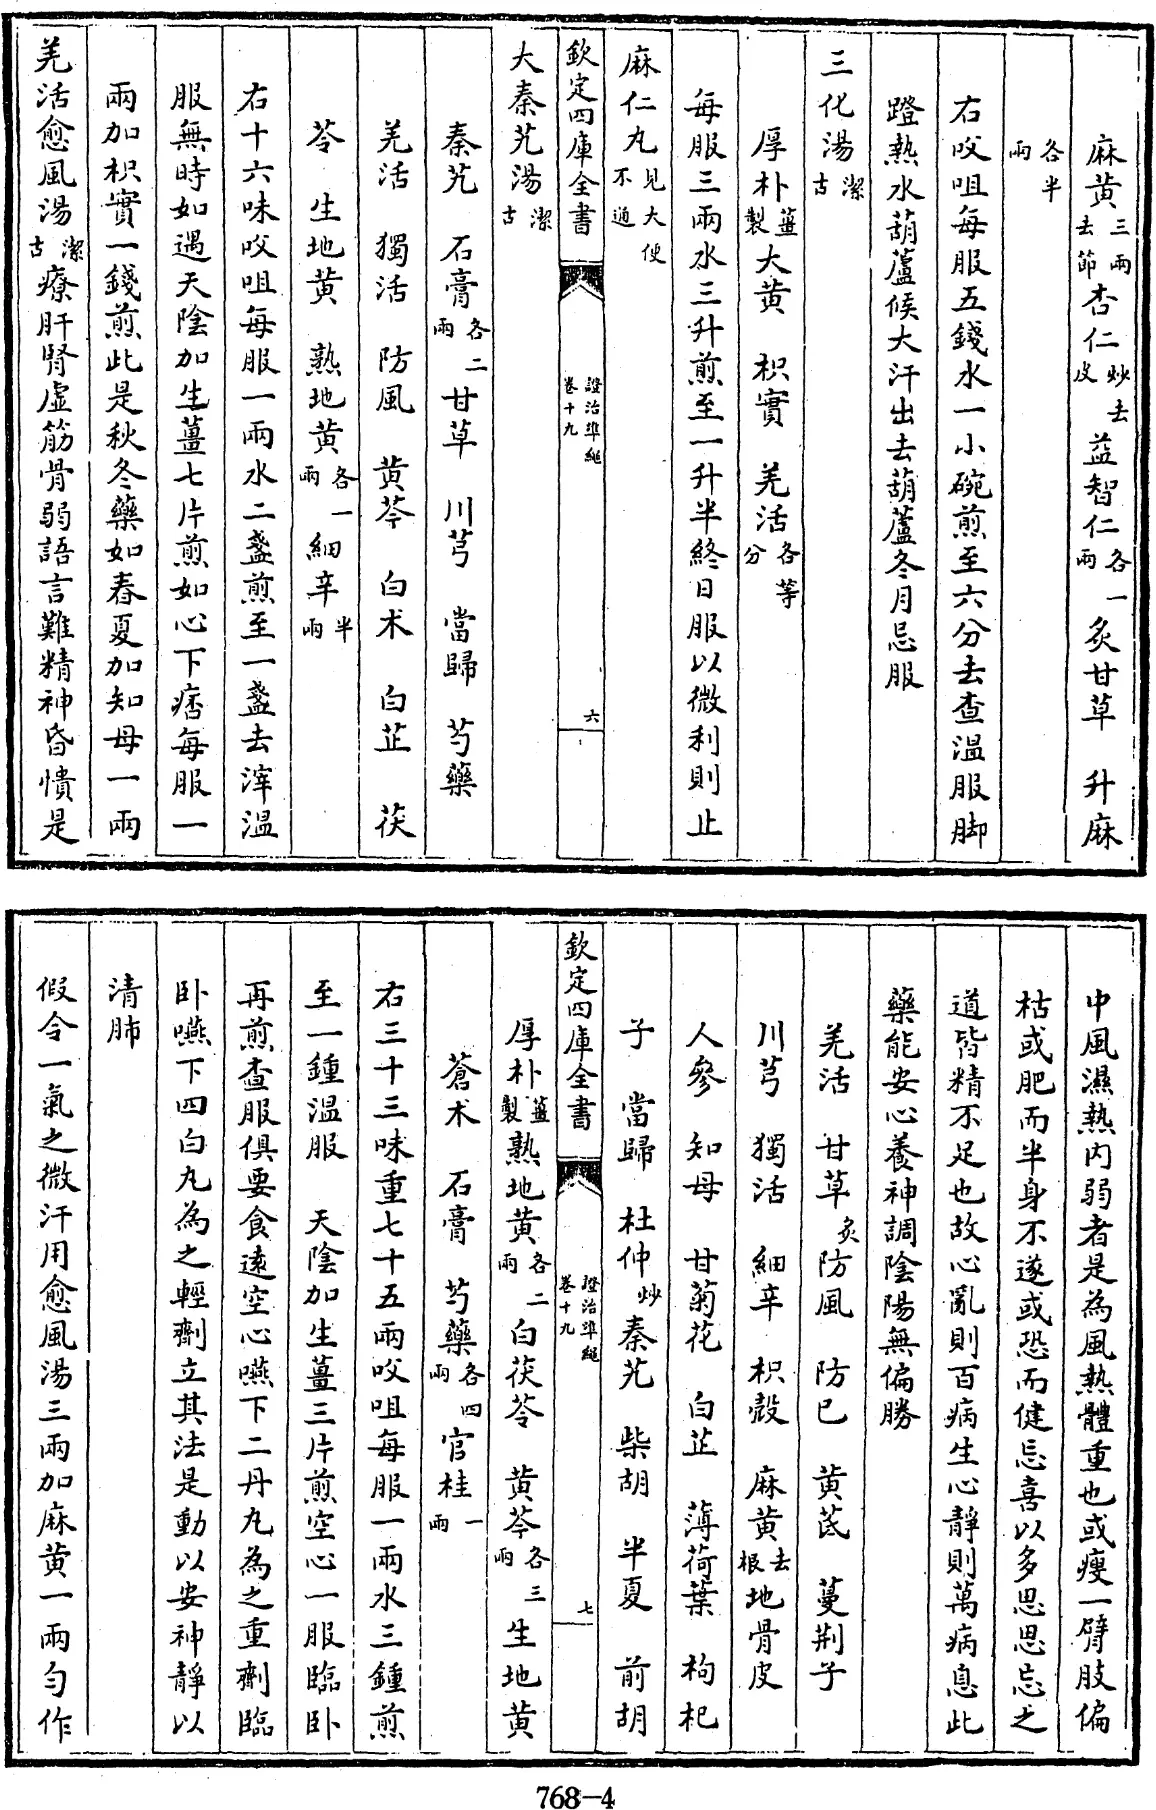 麻黄三兩去節杏仁炒去皮益智仁各一兩炙甘草　升麻
各半兩
右㕮咀每服五錢水一小碗煎至六分去査温服脚
蹬熱水葫蘆候大汗出去葫蘆冬月忌服
三化湯潔古
厚朴薑製大黄　枳實　羌活各等分
每服三兩水三升煎至一升半終日服以微利則止
麻仁丸見大便不通
欽定四庫全書　證治準繩卷十九　六
大秦艽湯潔古
秦艽　石膏各二兩甘草　川芎　當歸　芍藥
羌活　獨活　防風　黄芩　白术　白芷　茯
苓　生地黄　熟地黄各一兩細辛半兩
右十六味㕮咀每服一兩水二盞煎至一盞去滓温
服無時如遇天陰加生薑七片煎如心下痞每服一
兩加枳實一錢煎此是秋冬藥如春夏加知母一兩
羌活愈風湯潔古療肝腎虛筋骨弱語言難精神昏憒是
中風濕熱内弱者是為風熱體重也或瘦一臂肢偏
枯或肥而半身不遂或恐而健忘喜以多思思忘之
道皆精不足也故心亂則百病生心靜則萬病息此
藥能安心養神調陰陽無偏勝
羌活　甘草炙防風　防已　黄芪　蔓荆子
川芎　獨活　細辛　枳殻　麻黄去根地骨皮
人參　知母　甘菊花　白芷　薄荷葉　枸杞
子　當歸　杜仲炒秦艽　柴胡　半夏　前胡
欽定四庫全書　證治準繩卷十九　七
厚朴薑製熟地黄各二兩白茯苓　黄芩各三兩生地黄
蒼术　石膏　芍藥各四兩官桂一兩
右三十三味重七十五兩㕮咀每服一兩水三鍾煎
至一鍾温服　天陰加生薑三片煎空心一服臨卧
再煎査服俱要食遠空心嚥下二丹丸為之重劑臨
卧嚥下四白丸為之輕劑立其法是動以安神靜以
清肺
假令一氣之微汗用愈風湯三兩加麻黄一兩匀作
768—4